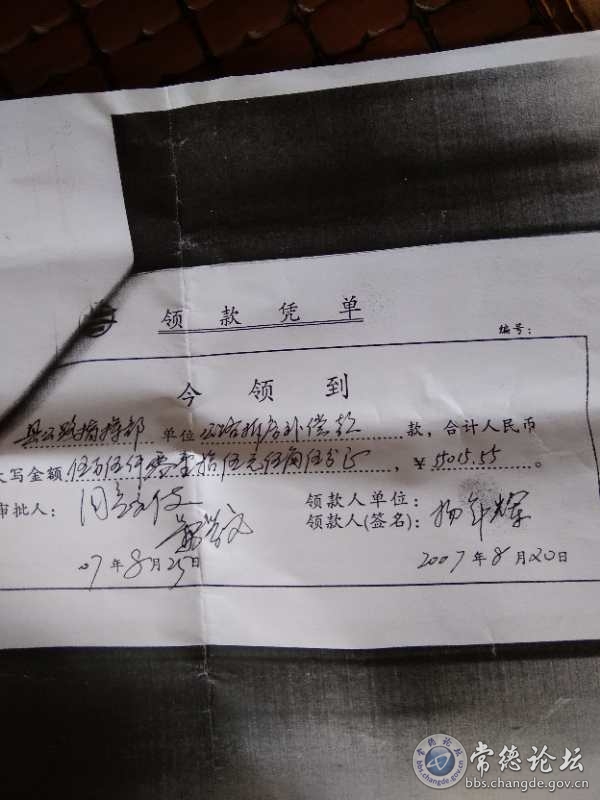 领款凭单
编号:
今领到
县公路指挥部 单位 公路拆房补偿款 款,合计人民币
大写金额 伍万伍仟零壹拾伍元伍角伍分 ,¥ 55015.55 。
审批人: 领款人单位:
领款人(签名): 杨年辉
07年8月25日 2007年8月20日
常德论坛
bbs.changde.gov.cn